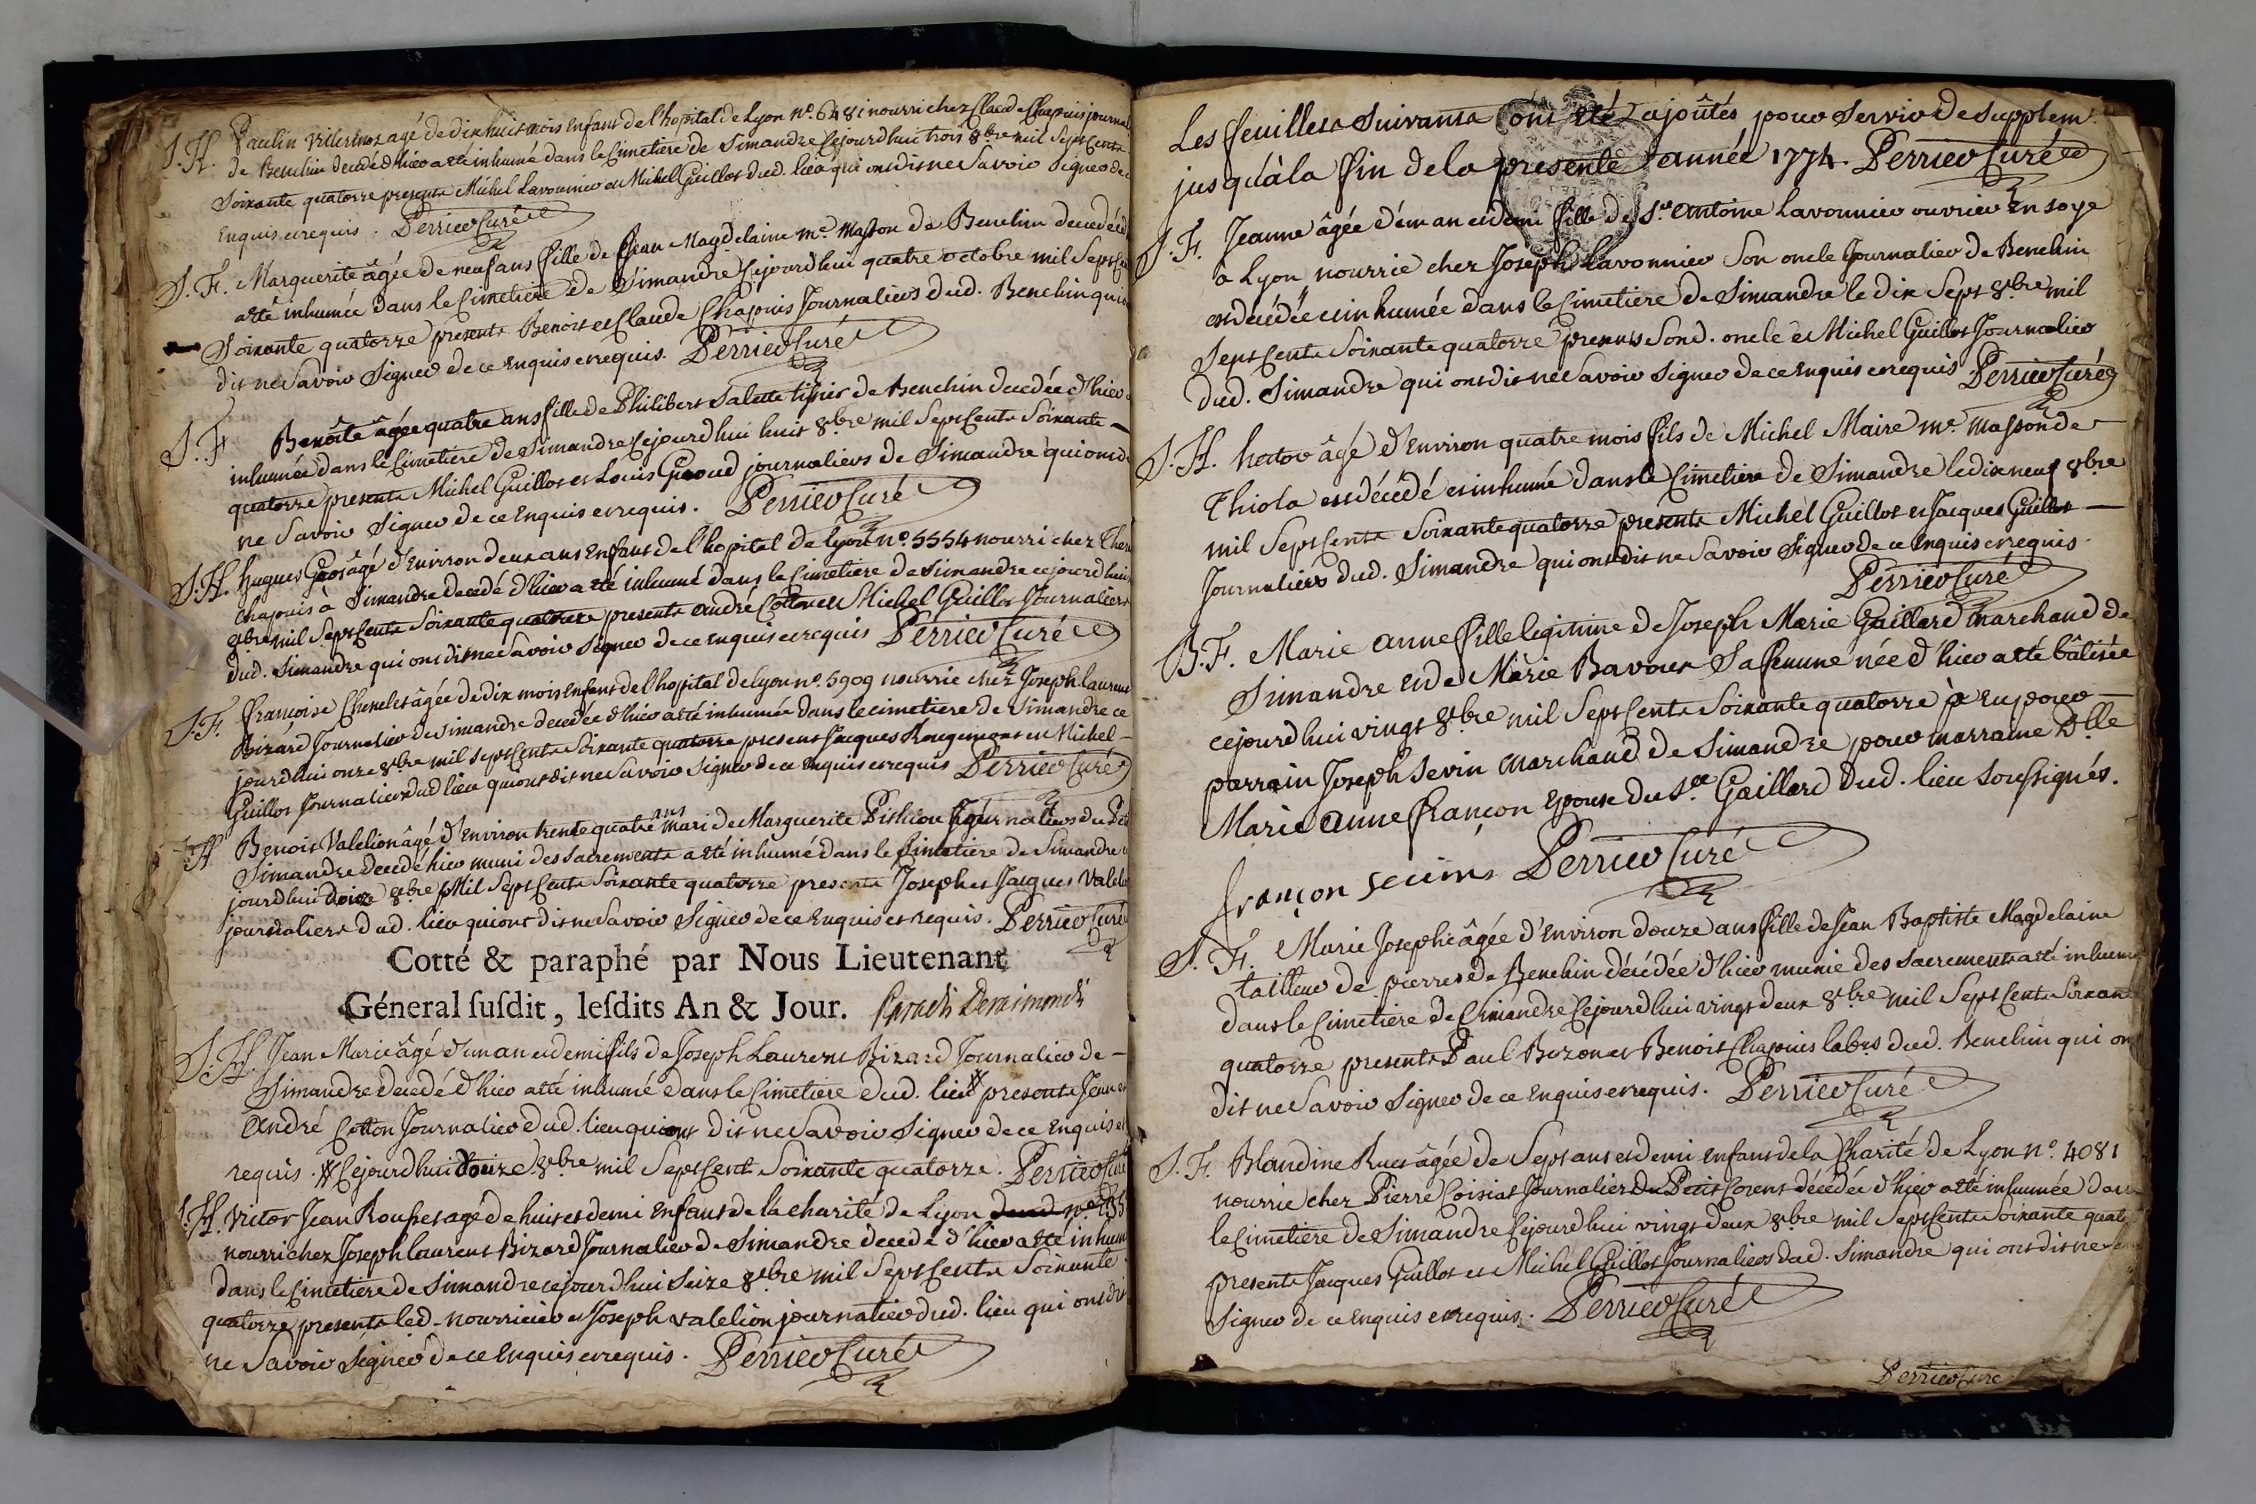 S.H. Paulin agé de dix huit mois Enfant de l'hopital de Lyon n.° 6481 nourri chez Claude Chapuis journal
de Benchin decedé d'hier a eté inhumé dans le Cimetiere de Simandre Cejourd'hui trois 8bre mil Sept Cents
Soixante quatorze presents Michel Lavonnier et Michel Guillot dud. lieu qui ont dit ne Savoir Signer de
Enquis et requis. Perrier Curé
S.F. Marguerite âgée de neuf ans fille de Jean Magdelaine m.e Masson de Benchin decedée d
a eté inhumée dans le Cimetiere de Simandre Cejourd'hui quatre octobre mil Sept Ce
Soixante quatorze presents Benoit et Claude Chapuis Journaliers dud. Benchin qui
dit ne Savoir Signer de ce Enquis et requis. Perrier Curé
S.F Benoîte âgée quatre ans fille de Philibert Salette tissier de Benchin decedée d'hier a
inhumée dans le Cimetiere de Simandre Cejourd'hui huit 8bre mil Sept Cents Soixante
quatorze presents Michel Guillot et Louis Giroud journaliers de Simandre qui ont d
ne Savoir Signer de ce Enquis et requis. Perrier Curé
S.H. hugues Gros âgé d'Environ deux ans Enfant de l'hopital de Lyon n.° 5554 nourri chez
Chapuis à Simandre decedé d'hier a eté inhumé dans le Cimetiere de Simandre cejourd'hui
8bre mil Sept Cents Soixante quatorze presents andré Cotton et Michel Guillot Journaliers
dud. Simandre qui ont dit ne Savoir Signer de ce enquis et requis Perrier Curé
S.F. françoise Chenelet âgée de dix mois Enfant de l'hopital de Lyon n.° 5909 nourrie chez Joseph laurent
Bizard Journalier de Simandre decedée d'hier a eté inhumée dans le cimetiere de Simandre ce
jourd'hui onze 8bre mil Sept Cents Soixante quatorze presents Jacques Rougemont et Michel
Guillot Journaliers dud lieu qui ont dit ne Savoir Signer de ce Enquis et requis Perrier Curé
H Benoit Valelion âgé d'Environ trente quatre ans mari de Marguerite Pithion Journaliers de
Simandre decedé hier muni des Sacrements a eté inhumé dans le Cimetiere de Simandre
jourd'hui 8bre Mil Sept Cents Soixante quatorze presents Joseph et Jacques Valel
journaliers dud. lieu qui ont dit ne Savoir Signer de ce Enquis et requis. Perrier Curé
Cotté & paraphé par Nous Lieutenant
Géneral ſuſdit, leſdits An & Jour.
S.H. Jean Marie âgé d'un an et demi fils de Joseph Laurent Bizard Journalier de
Simandre decedé d'hier a eté inhumé dans le Cimetiere dud. lieu presents Jean et
andré Cotton Journalier dud. lieu qui ont dit ne Savoir Signer de ce Enquis et
requis. Cejourd'hui 8bre mil Sept Cent Soixante quatorze. Perrier Curé
S.H. Victor Jean Rousset agé de huit et demi Enfant de la charité de Lyon
nourri chez Joseph laurent Bizard Journalier de Simandre decedé d'hier a eté inhum
dans le Cimetiere de Simandre cejourd'hui Seize 8bre mil Sept Cents Soixante
quatorze presents led. nourricier et Joseph valelion journalier dud. lieu qui ont dit
ne Savoir Signer de ce Enquis et requis. Perrier Curé
Les feuillets Suivants ont eté ajoûtés pour Servir de Supplem.t
jusqu'à la fin de la presente année 1774. Perrier Curé
S.F. Jeanne âgée d'un an et demi fille de Sr antoine Lavonnier ouvrier En soye
a Lyon nourrie chez Joseph Lavonnier Son oncle Journalier de Benchin
est décédée et inhumée dans le Cimetiere de Simandre le dix Sept 8bre mil
Sept Cents Soixante quatorze presents Sond. oncle et Michel Guillot Journalier
dud. Simandre qui ont dit ne Savoir Signer de ce Enquis et requis Perrier Curé
S.H. hector âgé d'Environ quatre mois fils de Michel Maire m.e masson de
Thiola est décédé et inhumé dans le Cimetiere de Simandre le dix neuf 8bre
mil Sept Cents Soixante quatorze presents Michel Guillot et Jacques Guillot
Journaliers dud. Simandre qui ont dit ne Savoir Signer de ce Enquis et requis.
Perrier Curé
B.F. Marie anne fille legitime de Joseph Marie Gaillard marchand de
Simandre et de Marie Bavoux Sa femme née d'hier a eté bâtisée
cejourd'hui vingt 8bre mil Sept Cents Soixante quatorze a Eu pour
parrain Joseph Sevin marchand de Simandre pour marraine D.lle
Marie anne françon Epouse du Sr Gaillard dud. lieu Soussignés.
françon sevin Perrier Curé
S.F. Marie Josephe âgée d'Environ douze ans fille de Jean Baptiste Magdelaine
tailleur de pierres de Benchin décédée d'hier munie des Sacrements a eté inhumé
dans le Cimetiere de Simandre Cejourd'hui vingt deux 8bre mil Sept Cents Soixan
quatorze presents Paul Buzon et Benoit Chapuis lab.rs dud. Benchin qui on
dit ne Savoir Signer de ce Enquis et requis. Perrier Curé
S.F. Blandine Ruet âgée de Sept ans et demi Enfant de la Charité de Lyon n.° 4081
nourrie chez Pierre Coisiat Journalier du Petit Corent décédée d'hier a eté inhumée dans
le Cimetiere de Simandre Cejourd'hui vingt deux 8bre mil Sept Cents Soixante quato
presents Jacques Guillot et Michel Guillot Journaliers dud. Simandre qui ont dit ne
Signer de ce Enquis et requis. Perrier Curé
Perrier Curé